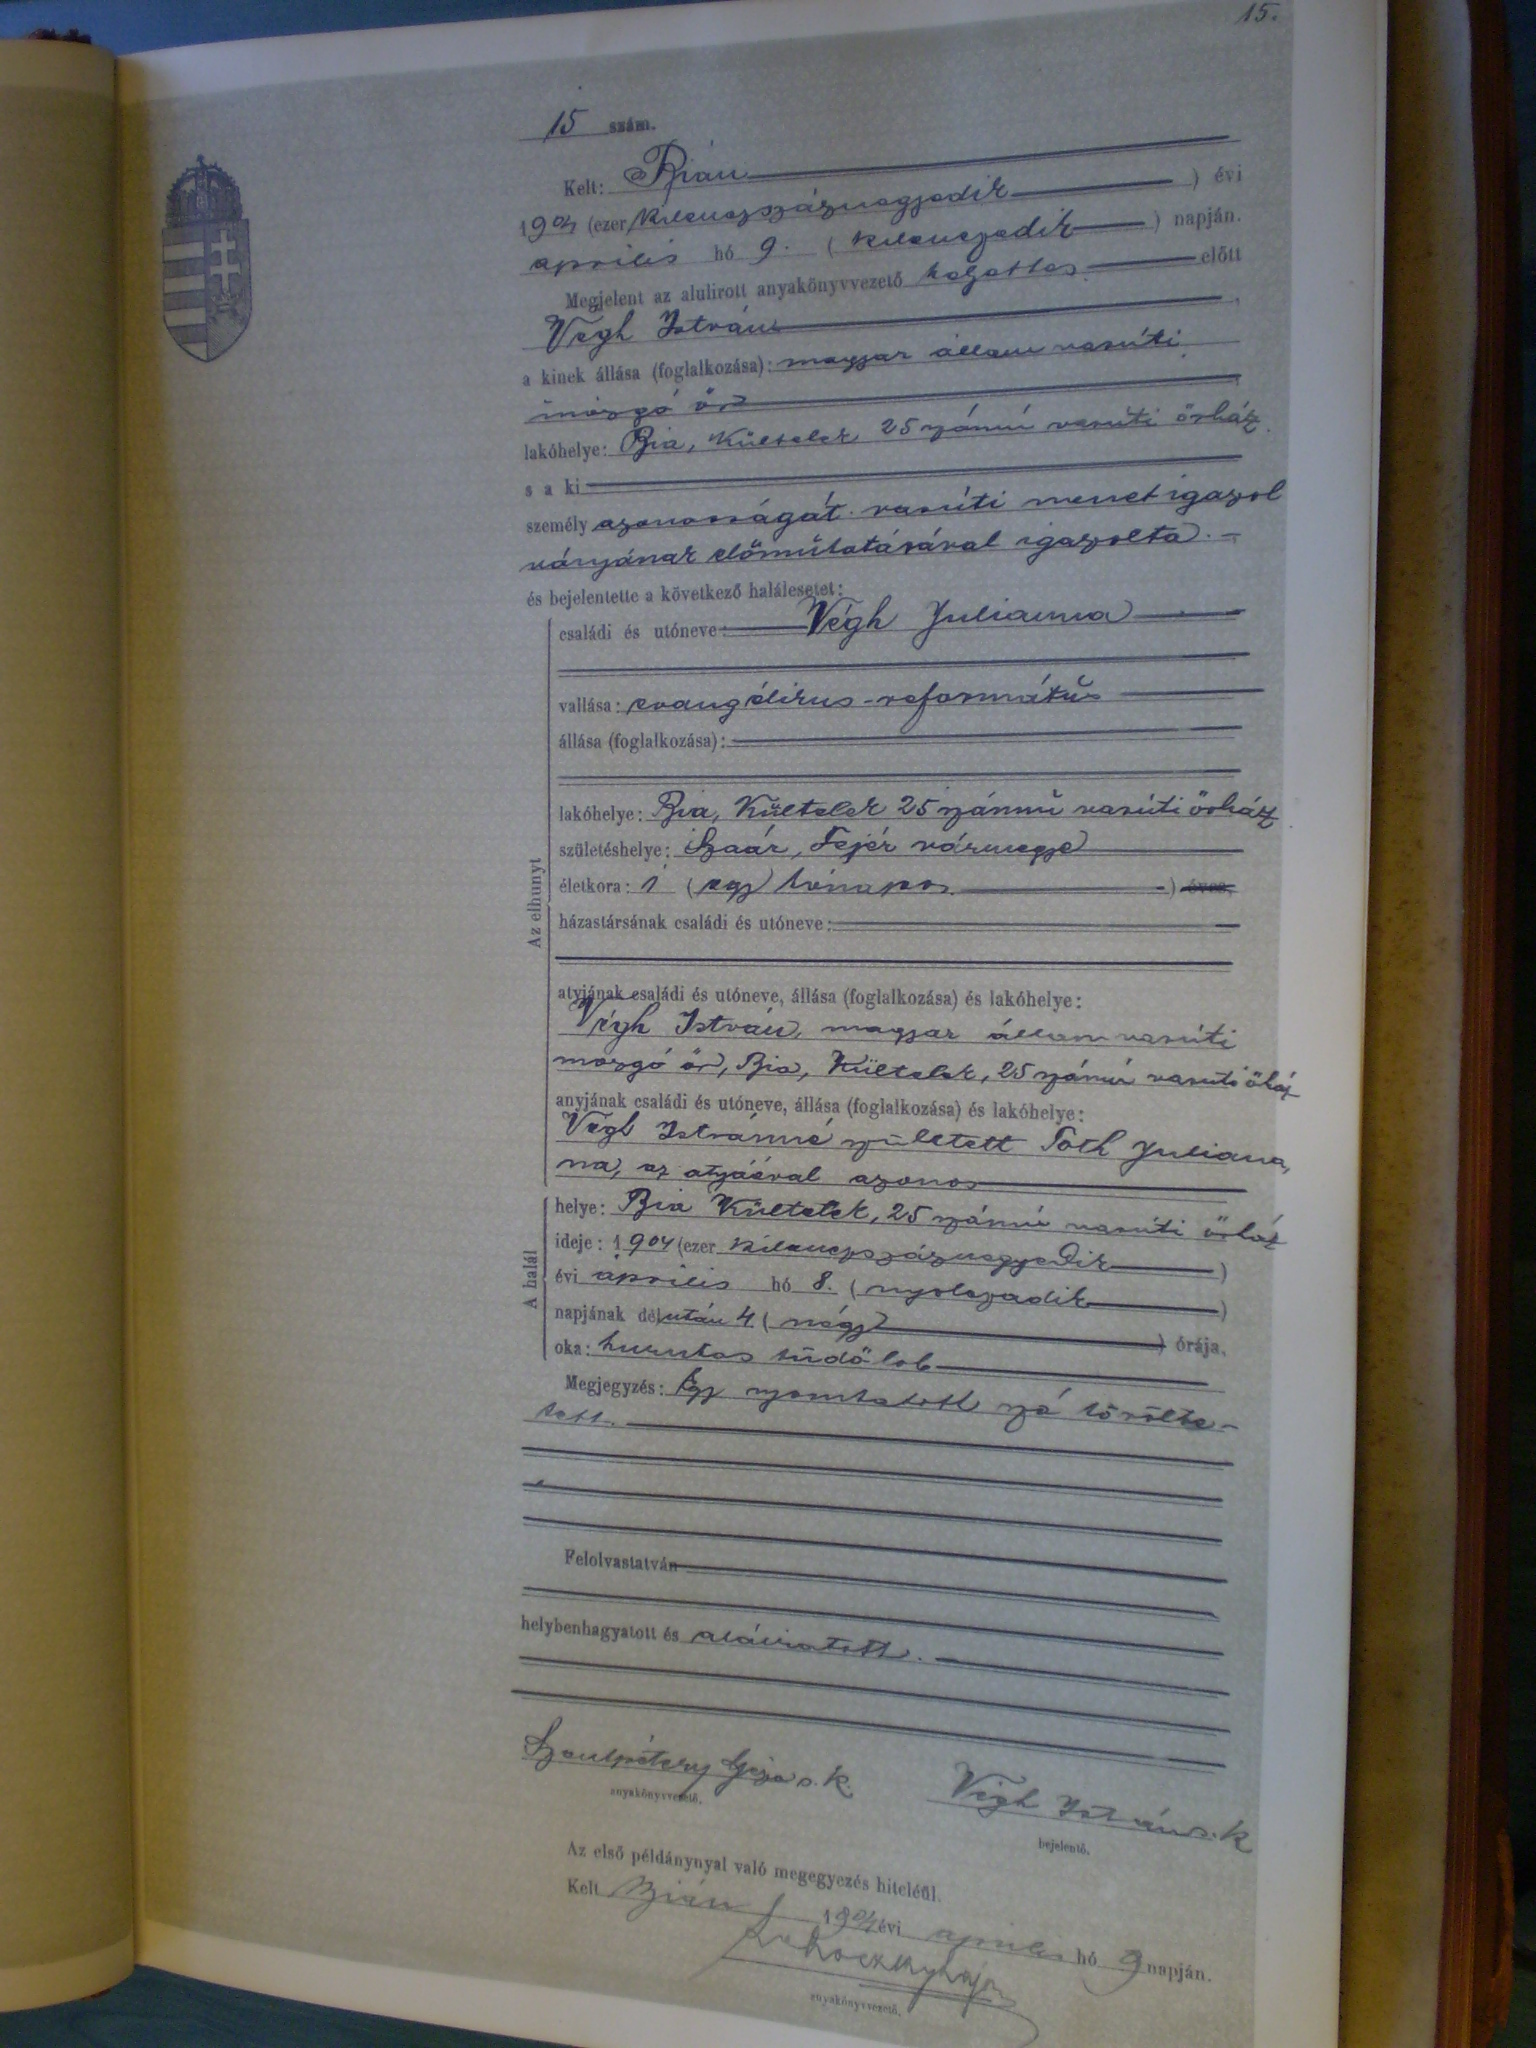 15.
15 szám.
Kelt: Bián
1904 (ezer kilenczszáznegyedik) évi
április hó 9. (kilenczedik) napján.
Megjelent az alulirott anyakönyvvezető helyettes előtt
Végh István
a kinek állása (foglalkozása): magyar állam vasúti
mozgó őr
lakóhelye: Bia, Kültelek 25 számú vasúti őrház
s a ki
személy azonosságát vasúti menet igazol
ványának előmutatásával igazolta.
és bejelentette a következő halálesetet:
Az elhunyt
családi és utóneve: Végh Julianna
vallása: evangélikus-református
állása (foglalkozása):
lakóhelye: Bia, Kültelek 25 számú vasúti őrház
születéshelye: Szaár, Fejér vármegye
életkora: 1 (egy) hónapos ) éves,
házastársának családi és utóneve:
atyjának családi és utóneve, állása (foglalkozása) és lakóhelye:
Végh István, magyar állam vasúti
mozgó őr, Bia, Kültelek, 25 számú vasuti őház
anyjának családi és utóneve, állása (foglalkozása) és lakóhelye:
Végh Istvánné született Toth Juliana,
na, az atyáéval azonos
A halál
helye: Bia Kültelek, 25 számú vasúti őrház
ideje: 1904 (ezer kilenczszáznegyedik)
évi április hó 8. (nyolczadik)
napjának délután 4 (négy) órája,
oka: hurutos tüdőlob
Megjegyzés: Egy nyomtatott szó törölte-
tett.
Felolvastatván
helybenhagyatott és aláiratott.
Szentpétery Géza s. k.
anyakönyvvezető.
Végh István s. k
bejelentő.
Az első példánynyal való megegyezés hiteléül.
Kelt Bián 1904 évi április hó 9 napján.
anyakönyvvezető.